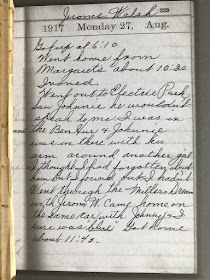 Jerome Walsh
1917 Monday 27, Aug.
Got up at 6:10.
Went home from
Margarets about 10:30
Ironed
Went out to Electric Park
Saw Johnnie he wouldn't
speak to me. I was in
the Ben Hur & Johnnie
was in there with his
arm around another girl
I thought I had forgotten about
him but I found out I hadn't
Went through the Millers Dream
with Jerome W. Came home on
the same car with Johnny & I
sure was "blue" Got home
about 11:40.